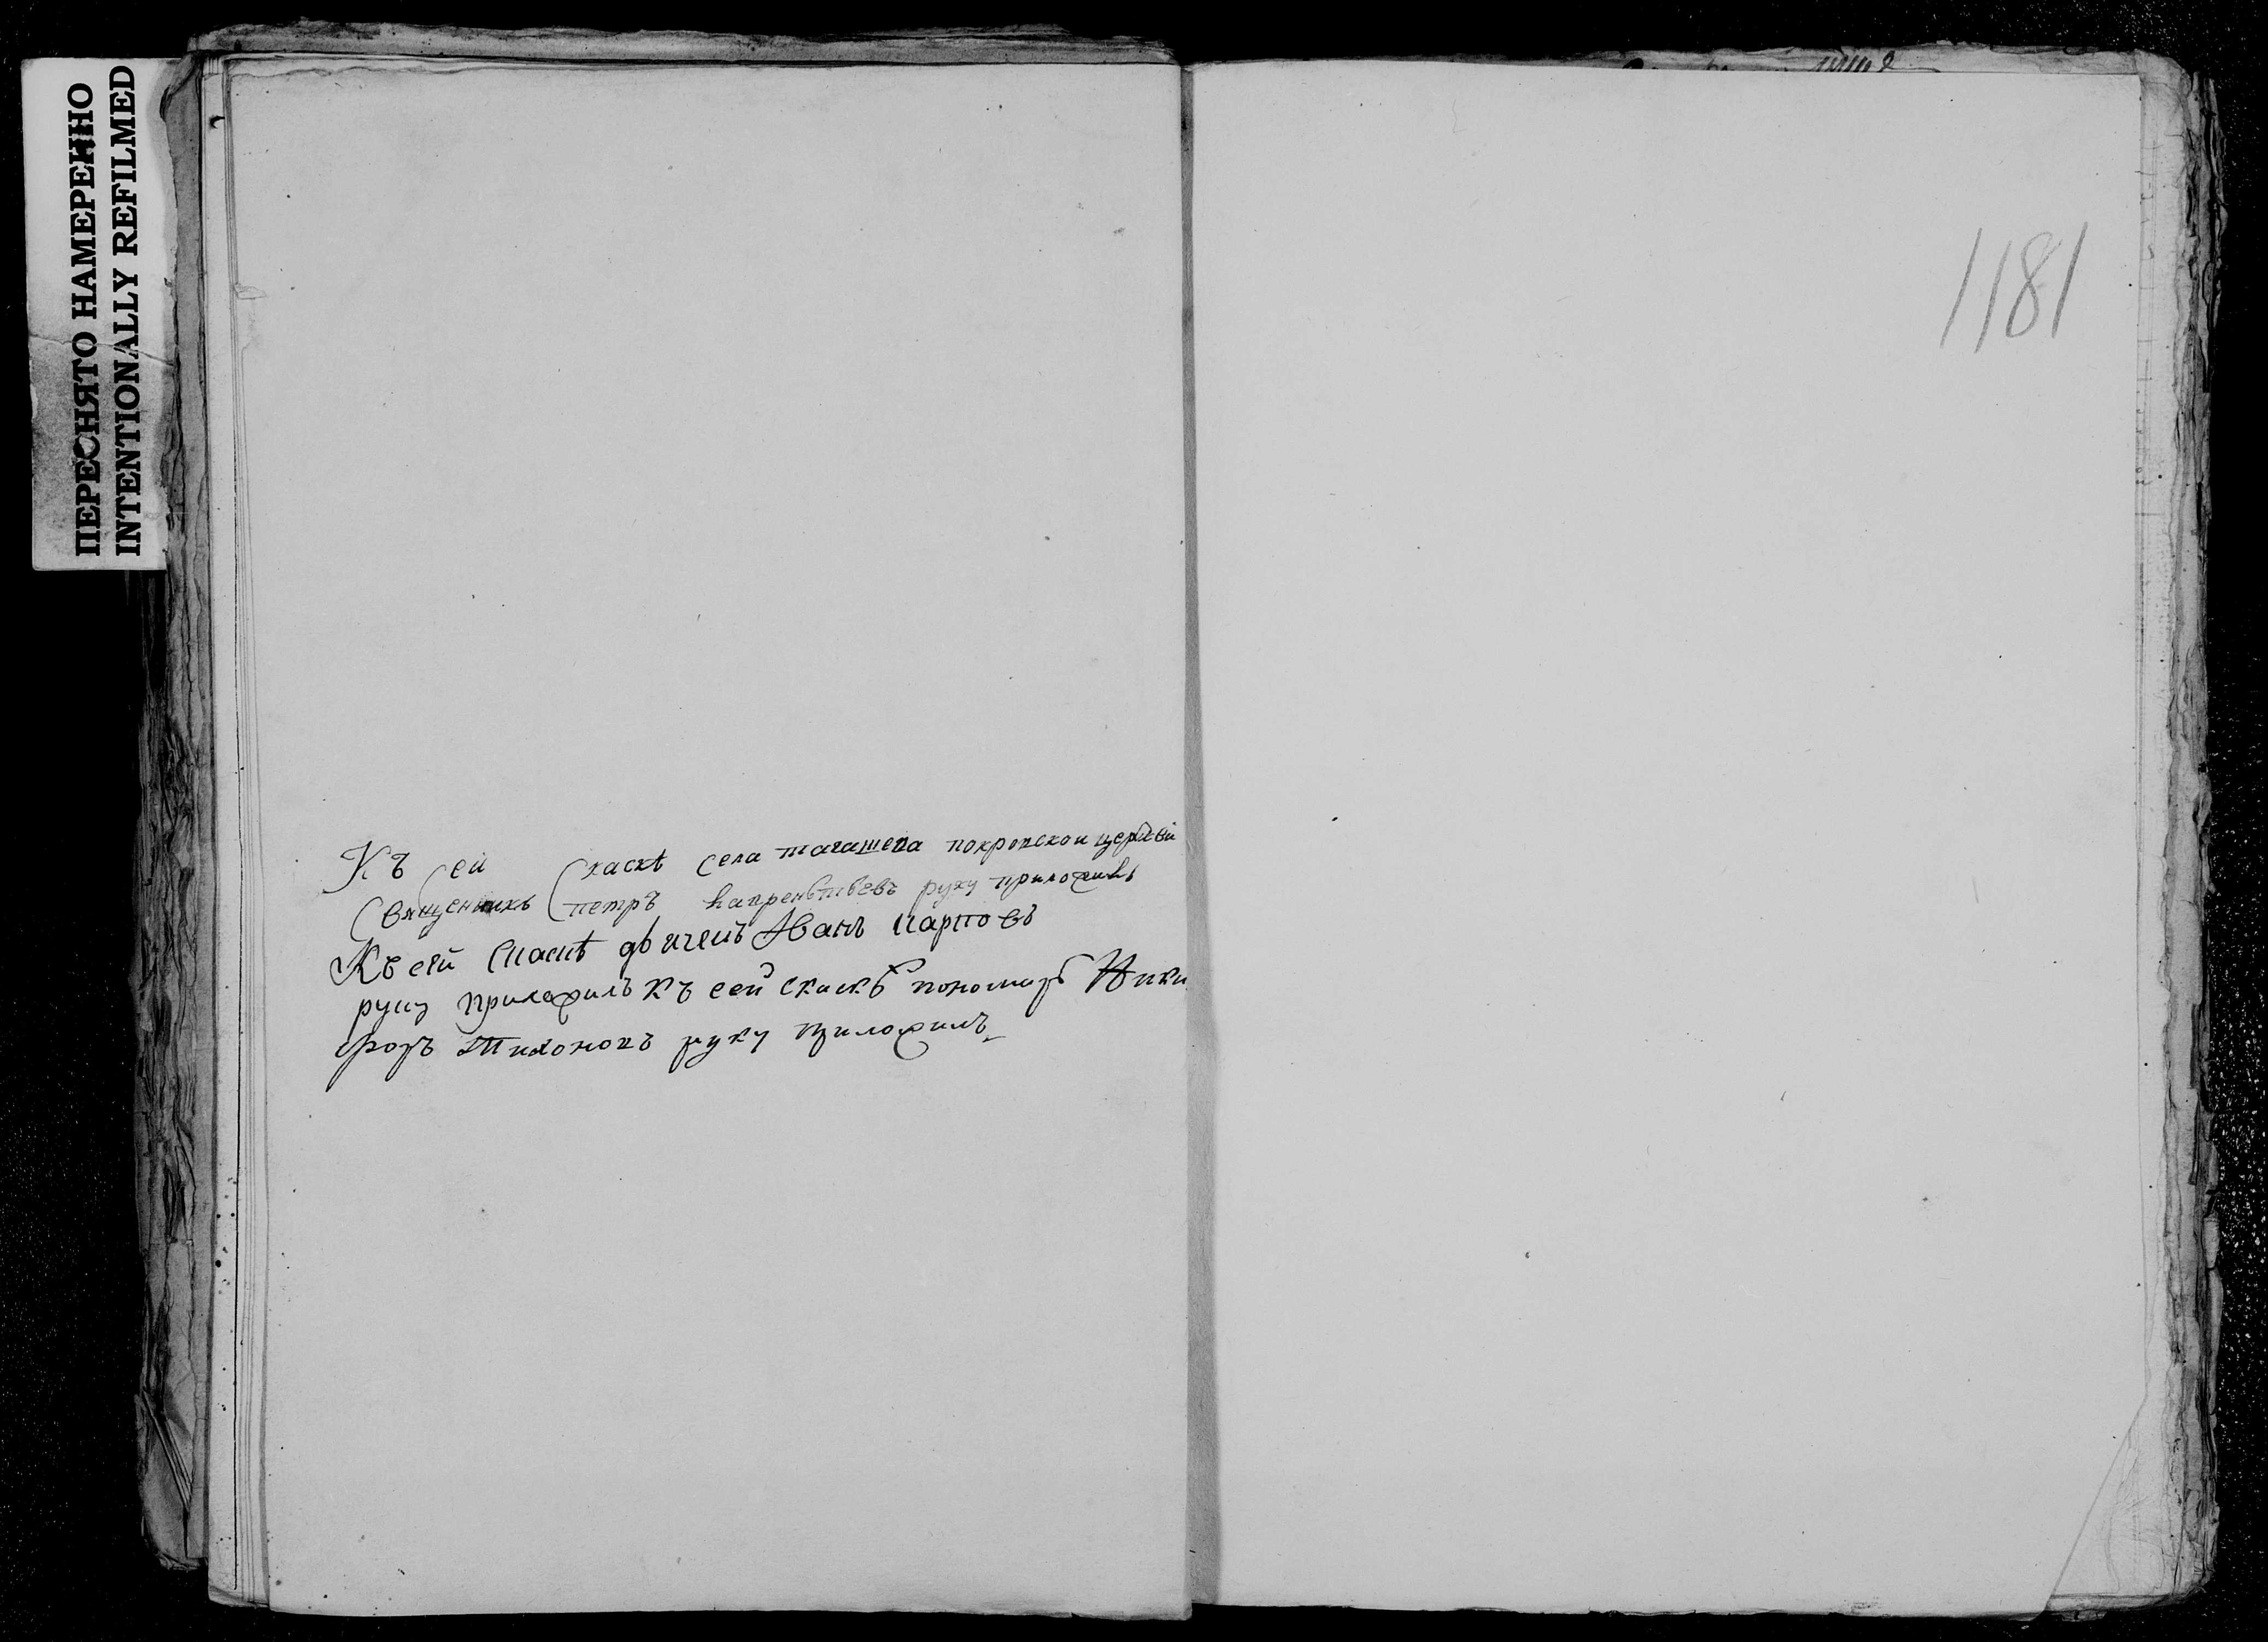 ПЕРЕСНЯТО НАМЕРЕННО
INTENTIONALLY REFILMED
1181
Къ сей скаскѣ села тагашева покровской церкви
священникъ петръ руку приложилъ
Къ сей скаскѣ дьячекъ Иванъ карповъ
руку приложилъ къ сей скаскѣ пономарь Ники
форъ Тихоновъ руку приложилъ